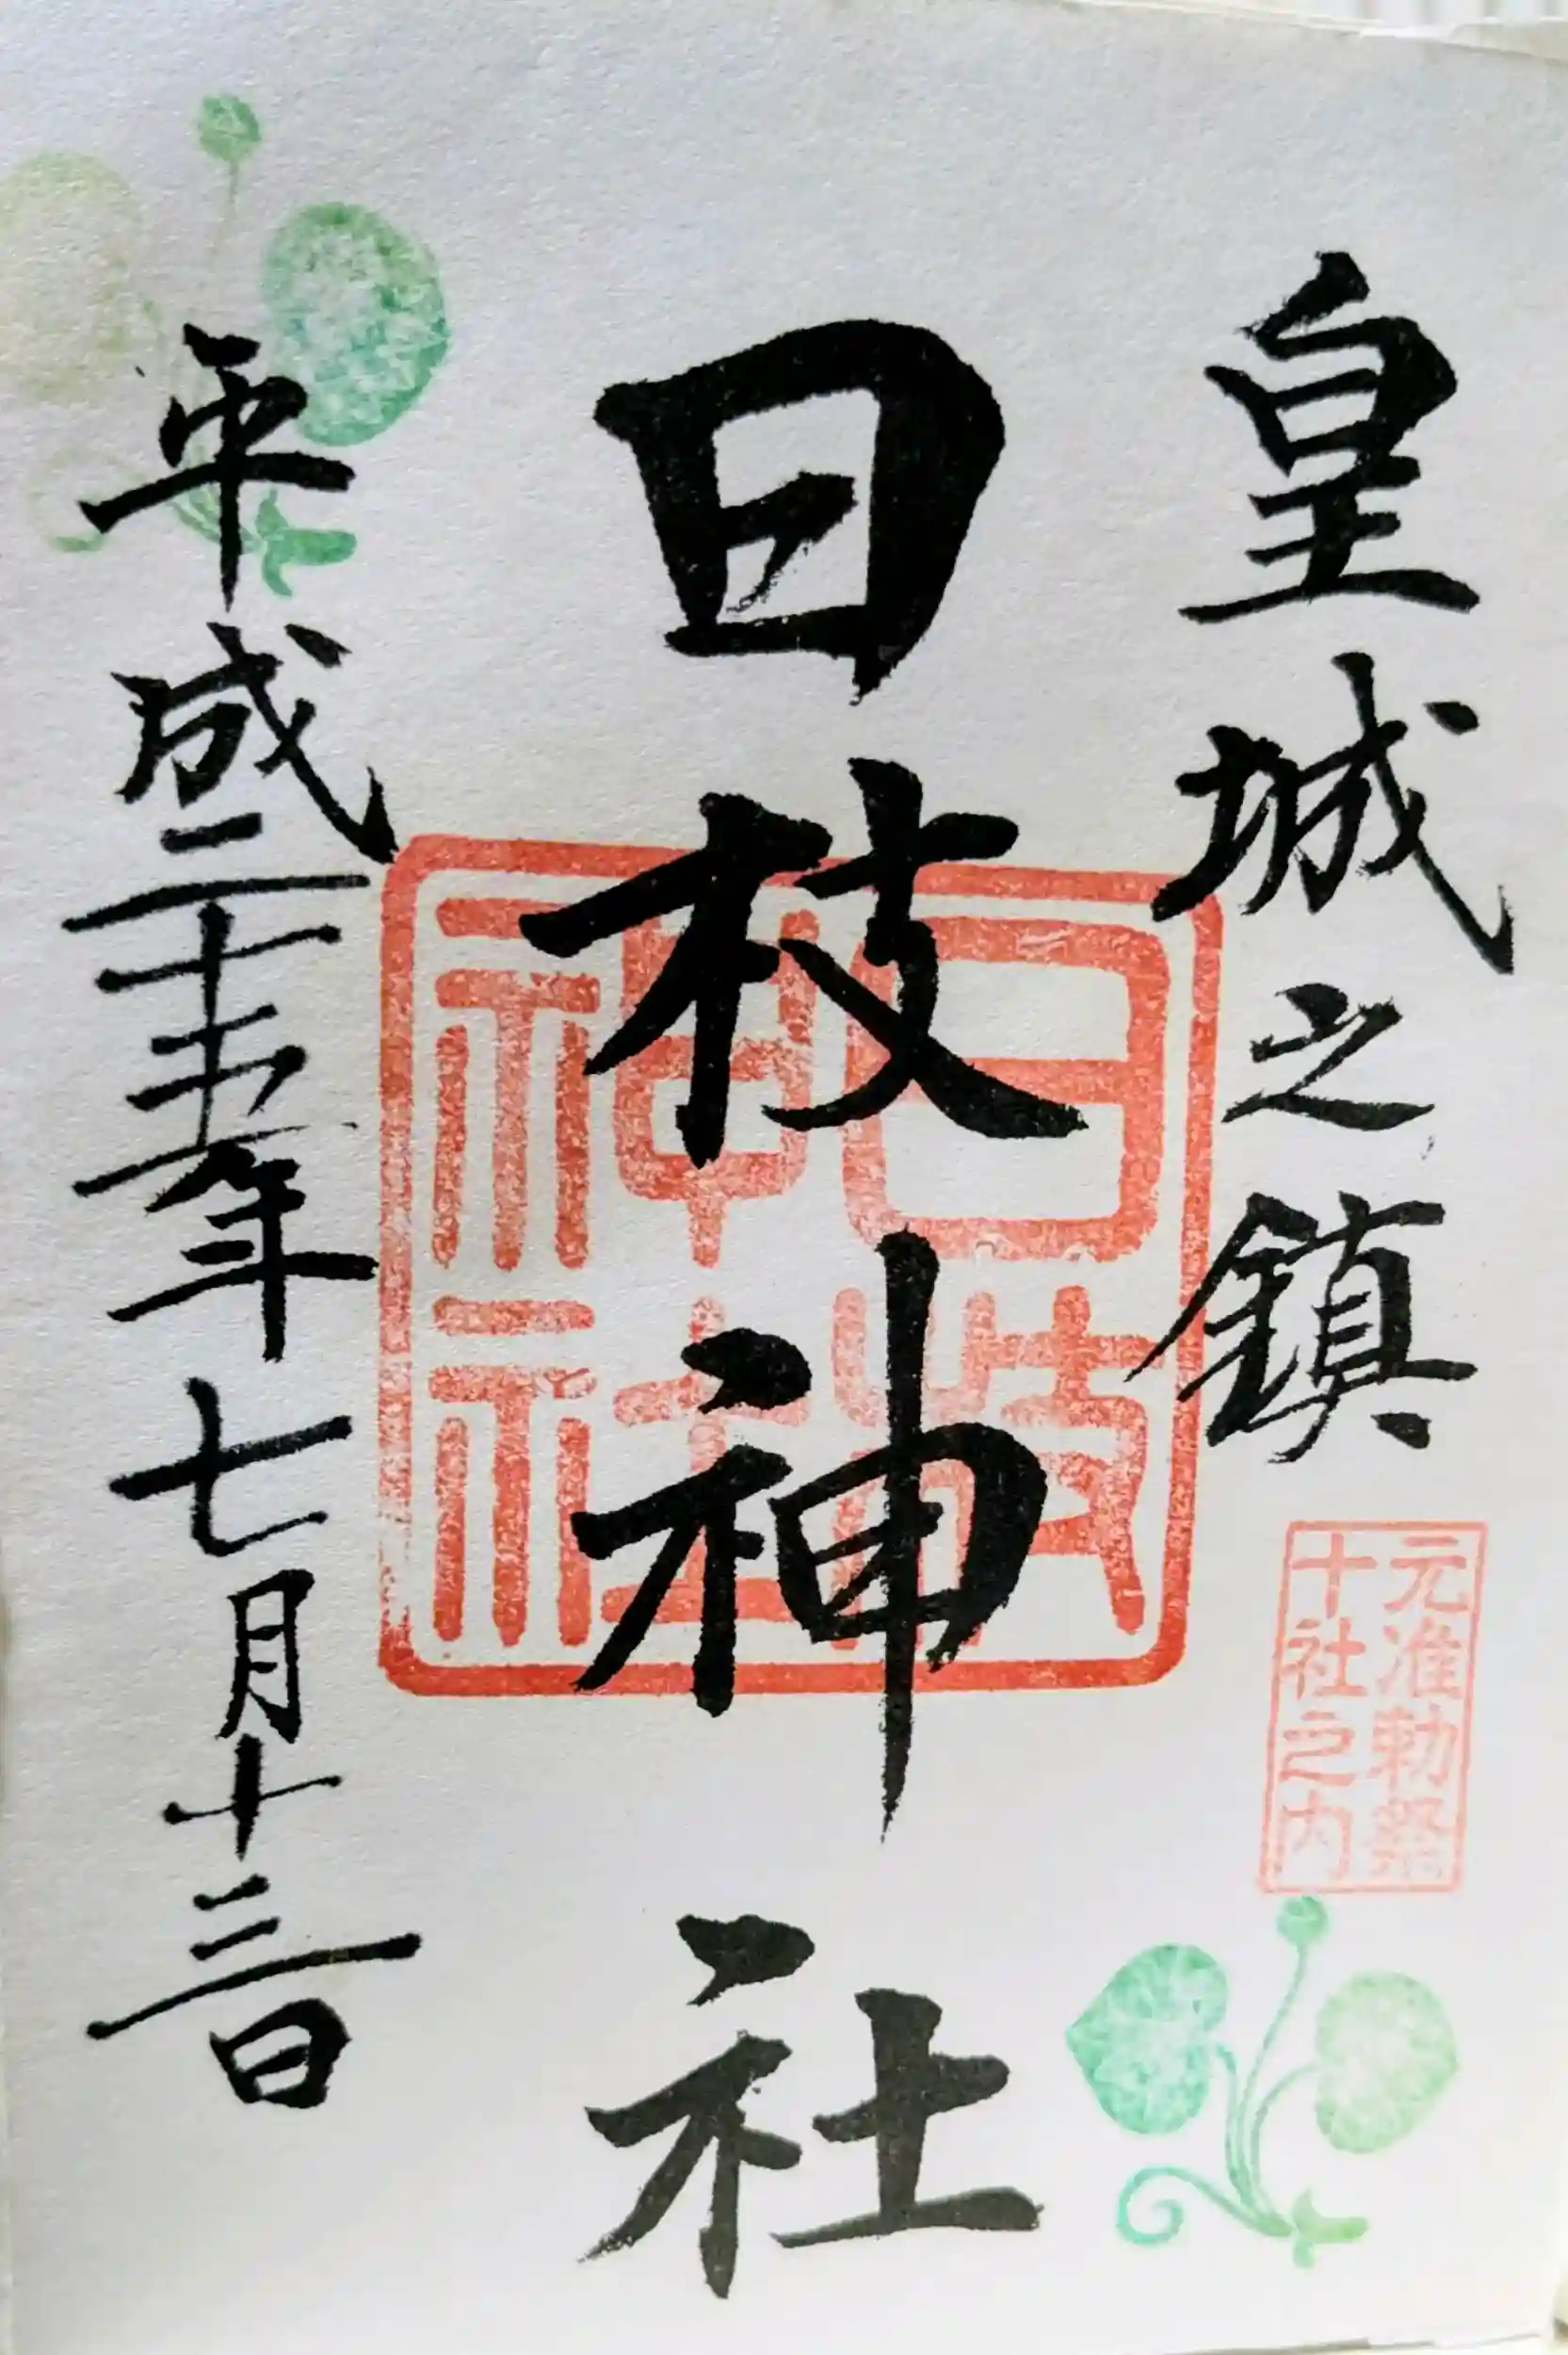 皇城之鎮
元准勅祭
十社之内
日枝神社
日枝
神社
平成二十五年七月十三日